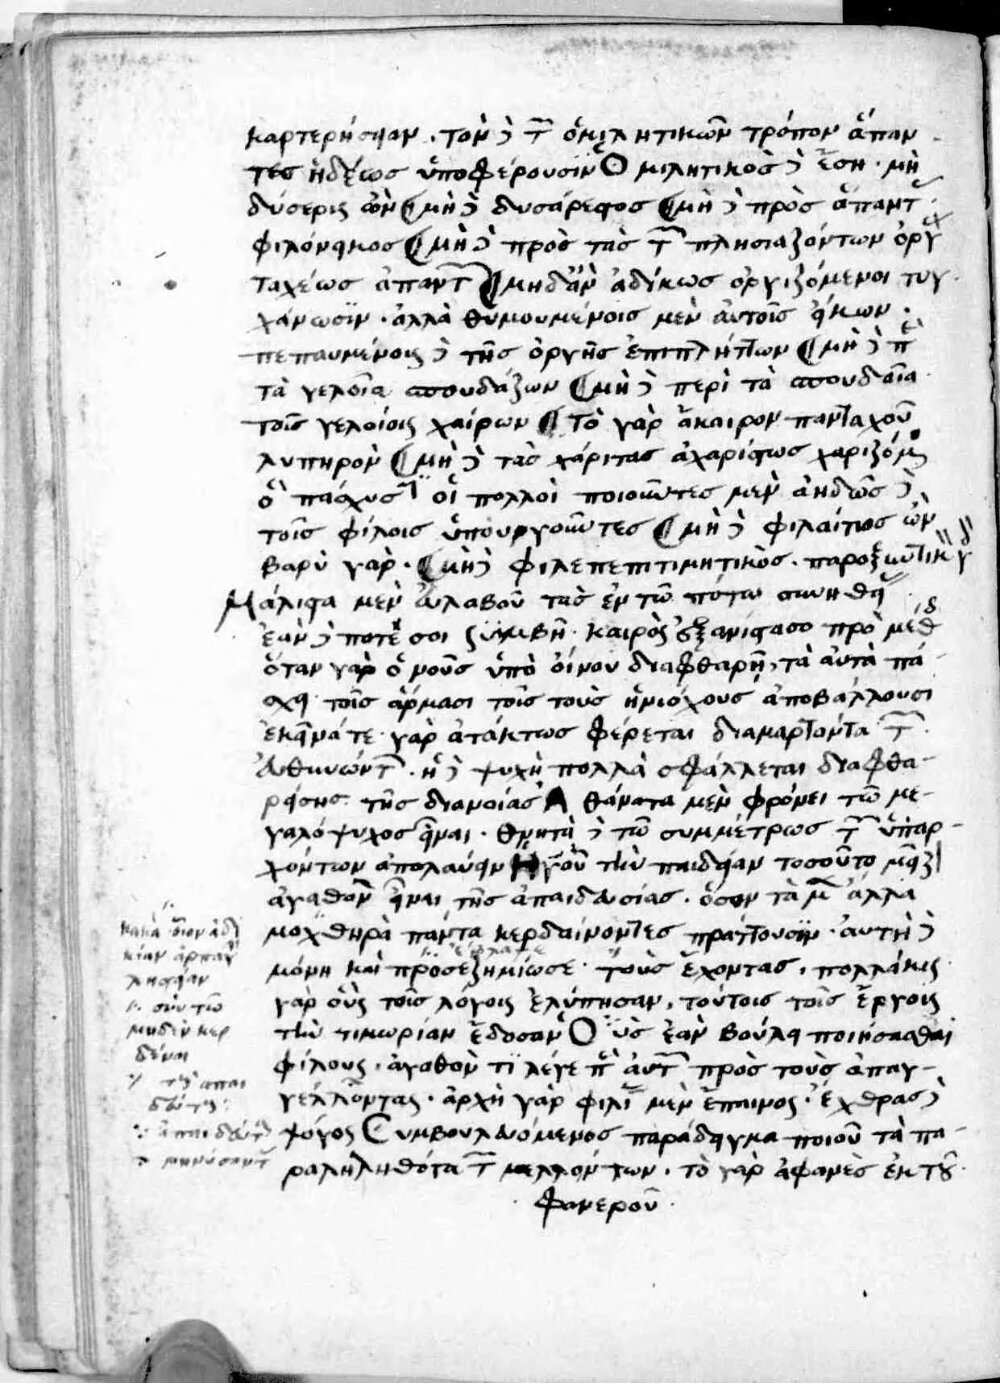 καρτερήσειαν. τὸν δὲ τῶν ὁμιλητικῶν τρόπον ἅπαν
τες ἡδέως ὑποφέρουσιν Ὁμιλητικὸς δὲ ἔσῃ. μὴ
δύσερις ὢν μὴ δὲ δυσάρεστος μὴ δὲ πρὸς ἅπαντας
φιλόνεικος μὴ δὲ πρὸς τὰς τῶν πλησιαζόντων ὀργὰς
ταχέως ἀπαντῶν μηδ' ἂν ἀδίκως ὀργιζόμενοι τυγ
χάνωσιν. ἀλλὰ θυμουμένοις μὲν αὐτοῖς εἴκων.
πεπαυμένοις δὲ τῆς ὀργῆς ἐπιπλήττων μὴ δὲ παρὰ
τὰ γελοῖα σπουδάζων μὴ δὲ περὶ τὰ σπουδαῖα
τοῖς γελοίοις χαίρων τὸ γὰρ ἄκαιρον πανταχοῦ
λυπηρὸν μὴ δὲ τὰς χάριτας ἀχαρίστως χαριζόμενος
ὃ πάσχουσιν οἱ πολλοὶ ποιοῦντες μὲν ἀηδῶς δὲ
τοῖς φίλοις ὑπουργοῦντες μὴ δὲ φιλαίτιος ὢν
βαρὺ γὰρ. μὴ δὲ φιλεπιτιμητικὸς. παροξυντικὸν γὰρ
Μάλιστα μὲν εὐλαβοῦ τὰς ἐν τῷ πότῳ συνηθείας
ἐὰν δὲ ποτέ σοι συμβῇ καιρὸς ἐξανίστασο πρὸ μέθης
ὅταν γὰρ ὁ νοῦς ὑπὸ οἴνου διαφθαρῇ, τὰ αὐτὰ πά-
σχει τοῖς ἅρμασι τοῖς τοὺς ἡνιόχους ἀποβάλλουσι
ἐκεῖνά τε γὰρ ἀτάκτως φέρεται διαμαρτόντα τῶν
εὐθυνόντων. ἥ δὲ ψυχὴ πολλὰ σφάλλεται διαφθα-
ρείσης τῆς διανοίας Ἀθάνατα μὲν φρόνει τῷ με-
γαλόψυχος εἶναι. θνητὰ δὲ τῷ συμμέτρως τῶν ὑπαρ-
χόντων ἀπολαύειν Ἡγοῦ τὴν παιδείαν τοσοῦτο μεῖζον
ἀγαθὸν εἶναι τῆς ἀπαιδευσίας. ὅσον τὰ μὲν ἄλλα
μοχθηρὰ πάντα κερδαίνοντες πράττουσιν. αὐτὴ δὲ
μόνη καὶ προσεζημίωσε τοὺς ἔχοντας. πολλάκις
γὰρ οὓς τοῖς λόγοις ἐλύπησαν, τούτοις τοῖς ἔργοις
τὴν τιμωρίαν ἔδοσαν Οὓς ἐὰν βούλῃ ποιήσασθαι
φίλους. ἀγαθόν τι λέγε περὶ αὐτῶν πρὸς τοὺς ἀπαγ-
γέλλοντας. ἀρχὴ γὰρ φιλίας μὲν ἔπαινος. ἔχθρας δὲ
ψόγος Συμβουλευόμενος παράδειγμα ποιοῦ τὰ πα-
ραληλυθότα τῶν μελλόντων. τὸ γὰρ ἀφανὲς ἐκ τοῦ
φανεροῦ
κακὰ οἷον ἀδι
κίαν ἁρπαγὴν
λῃστείαν
σὺν τῷ
μηδὲν κερ
δᾶναι